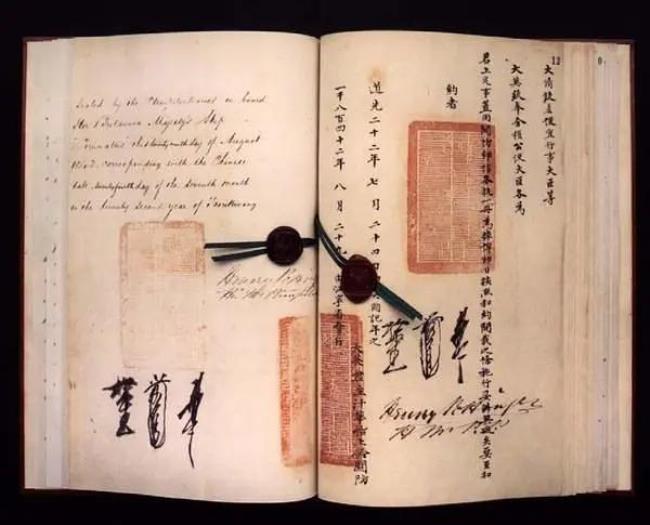 Sealed by the Plenipotentiaries on board
Her Britannic Majesty's Ship
Cornwallis this twenty ninth day of August
1842. corresponding with the Chinese
date, twenty fourth day of the seventh month
in the twenty second year of Taoukwang
Henry Pottinger
12
大清欽差便宜行事大臣等
大英欽奉全權公使大臣各為
君上定事蓋用關防印信各執一冊為據俾即日按照和約開載之條施行妥辦無礙矣要至和
約者
道光二十二年七月二十四日即英國記年之
一千八百四十二年八月二十九日由江寧省會行
大英君主汗華麗船上鈐關防
Henry Pottinger